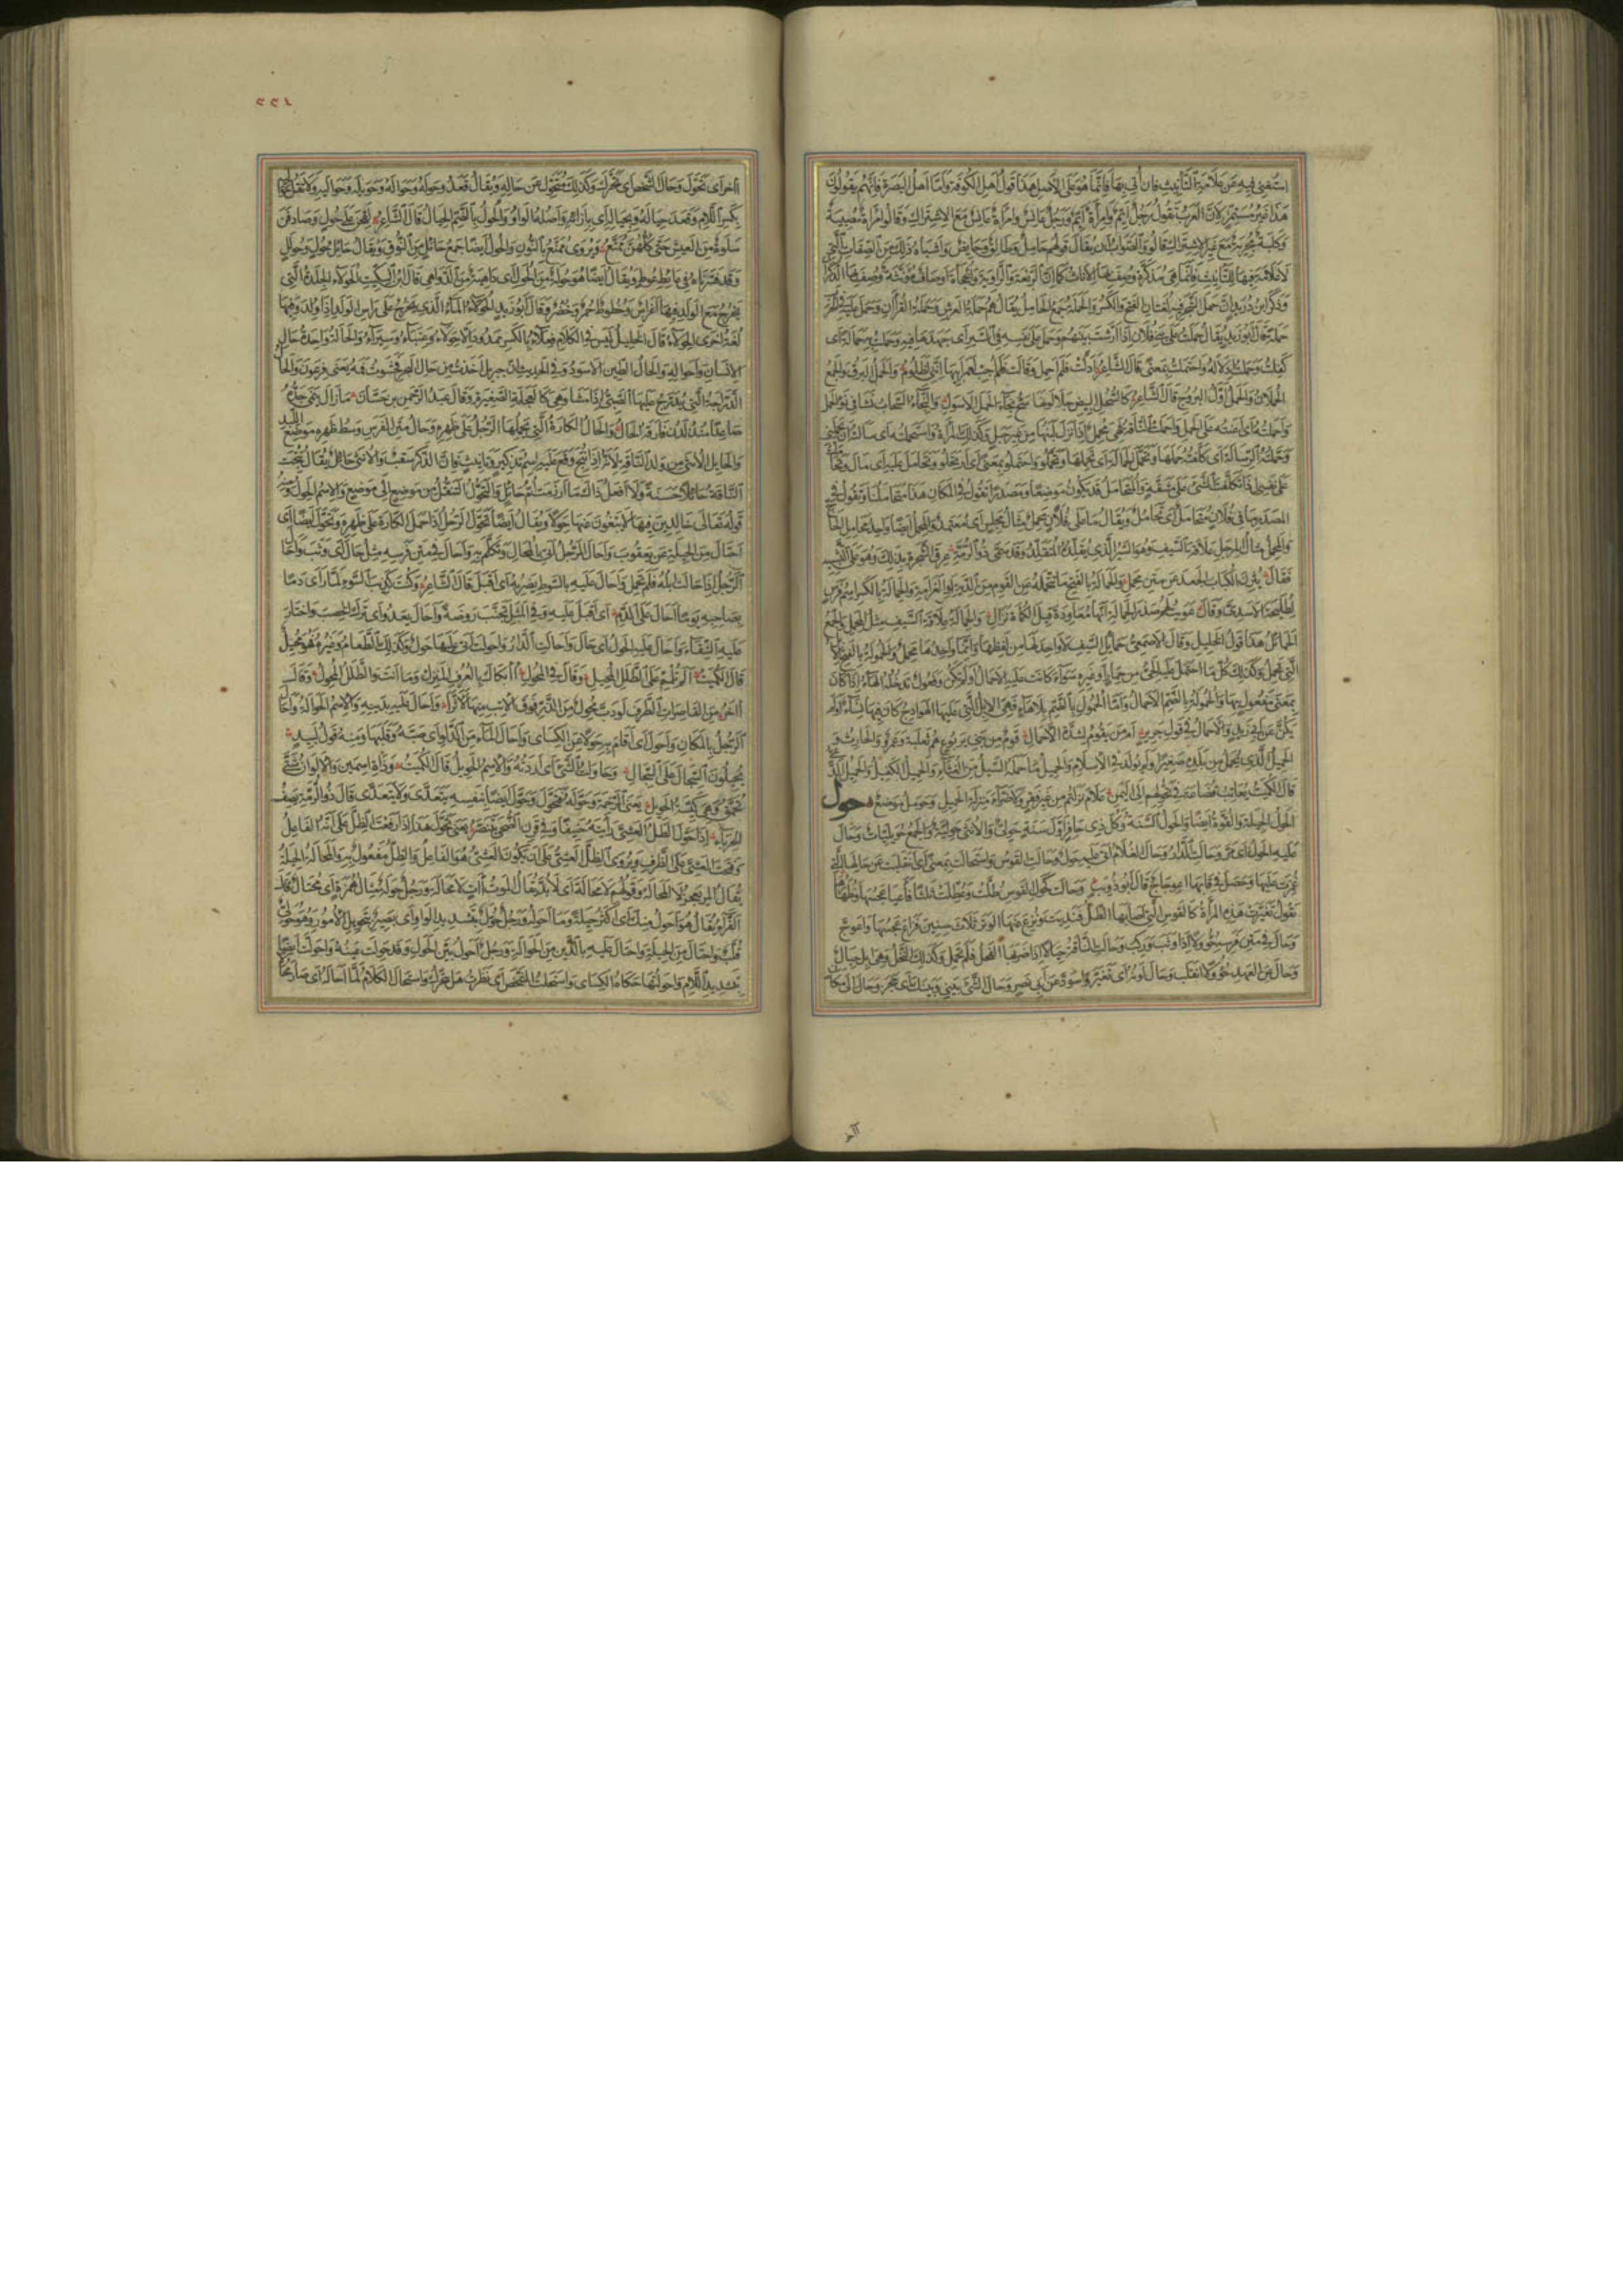 استغنى فيه عن علامة التأنيث فان أتى بها فإنما هو على الأصل هذا قول أهل الكوفة وأما أهل البصرة فإنهم يقولون
هذا غير مستمر لأن العرب تقول رجل أيم وامرأة أيم ورجل عانس وامرأة عانس مع الاشتراك وقالوا امرأة مصبية
وكلبة مجرية مع غير الاشتراك قالوا والصواب أن يقال قولهم حامل وطالق وحايض وأشباه ذلك من الصفات التي
لا علامة فيها للتأنيث وإنما هي مذكرة وصف بها الاناث كما أن الربعة والراوية والخجأة أوصاف مؤنثة وصف بها الذكران
وذكر ابن دريد أن حمل الشجر فيه لغتان الفتح والكسر والحملة جمع الحامل يقال هم حملة العرش وحملة القرآن وحمل عليه في الحرب
حملة قال أبو زيد يقال حملت على بني فلان إذا أرشت بينهم وحمل على نفسه في السير أي جهدها فيه وحملت به حمالة أي
كفلت وحملت إدلاله واحتملت بمعنى قال الشاعر أدلت فلم أحمل وقالت فلم أجب لعمر أبيها إنني لظلوم والحمل البرق والجمع
الحملان والحمل أول البروج قال الشاعر كالسحل البيض جلا لونها سح نجاء الحمل الأسول
وأحملته أي أعنته على الحمل وأحملت الناقة فهي محمل إذا نزل لبنها من غير حبل وكذلك المرأة واستحملته أي سألته أن يحملني
وحملته الرسالة أي كلفته حملها وتحمل الحمالة أي حملها وتحملوا واحتملوا بمعنى أي ارتحلوا وتحامل عليه أي مال وتحاملت
على نفسي إذا تكلفت الشئ على مشقة والمتحامل قد يكون موضعا ومصدرا تقول في المكان هذا متحاملنا وتقول في
المصدر ما في فلان متحامل أي تحامل ويقال ما على فلان محمل مثال مجلس أي معتمد والمحمل أيضا واحد محامل الحاج
والمحمل مثال المرجل علاقة السيف وهو السير الذي يقلده المتقلد وقد سمى ذو الرمة عرق الشجرة بذلك وهو على التشبيه
الحمائل هذا قول الخليل وقال الأصمعي حمائل السيف لا واحد لها من لفظها وإنما واحدها محمل والحمولة بالفتح الإبل
التي تحمل وكذلك كل ما احتمل عليه الحي من حمار أو غيره سواء كانت عليه الأحمال أو لم تكن وفعول تدخله الهاء إذا كان
بمعنى مفعول بها والحمولة بالضم الأحمال وأما الحمول بالضم بلا هاء فهي الإبل التي عليها الهوادج كان فيها نساء أو لم
يكن عن أبي زيد والأحمال في قول جرير أم من يقوم لشدة الأحمال قوم من بني يربوع هم ثعلبة وعمرو والحارث
الحميل الذي يحمل من بلده صغيرا ولم يولد في الاسلام والحميل ما حمله السيل من الغثاء والحميل الكفيل والحميل الدعي
قال الكميت يعاتب قضاعة في تحولهم إلى اليمن علام نزلتم من غير فقر ولا ضراء منزلة الحميل وحومل موضع حول
الحول الحيلة والقوة أيضا والحول السنة وكل ذي حافر أول سنة حولي والأنثى حولية والجمع حوليات وحال
عليه الحول أي مر وحالت الدار وحال الغلام أتى عليه حول وحالت القوس واستحالت بمعنى أي انقلبت عن حالها التي
غمزت عليها وحصل في قابها اعوجاج قال أبو ذؤيب وحالت كحول القوس طلت وعطلت ثلثا فأعيا عجسها وظهارها
يقول تغيرت هذه المرأة كالقوس التي أصابها الطل فنديت ونزع عنها الوتر ثلاث سنين فزاغ عجسها واعوج
وحال في متن فرسه حؤولا إذا وثب وركب وحالت الناقة حيالا إذا ضربها الفحل فلم تحمل وكذلك النخل وهي إبل حيال
وحال عن العهد حؤولا انقلب وحال لونه أي تغير واسود عن أبي نصر وحال الشئ بيني وبينك أي حجز وحال إلى مكان
٢٢٤
آخر أي تحول وحال الشخص أي تحرك وكذلك كل متحول عن حاله ويقال قعد حوله وحواله وحوليه وحواليه ولا تقل حواليه
بكسر اللام وقعد حياله وبحياله أي بازائه وأصله الواو والحول بالضم الحيال قال الشاعر لقحن على حول وصادفن
سلوة من العيش حتى كلهن ممتع ويروى ممنع بالنون والحول أيضا جمع حائل من النوق ويقال حائل حول وحولل
يخرج مع الولد فيها أغراس وخطوط حمر وخضر وقال أبو زيد الحولاء الماء الذي يخرج على رأس الولد إذا ولد وفيها
لغة أخرى الحولاء قال الخليل ليس في الكلام فعلاء بالكسر ممدودا إلا حولاء وعنباء وسيراء والحالة واحدة حال
الإنسان وأحواله والحال الطين الأسود وفي الحديث أن جبريل أخذت من حال البحر فحشوت فمه يعني فرعون والحال
الدراجة التي يدرج عليها الصبي إذا مشى وهي كالعجلة الصغيرة وقال عبد الرحمن بن حسان ما زال ينمي جده
صاعدا منذ لدن فارقه الحال والحال الكارة التي يحملها الرجل على ظهره وحال متن الفرس وسط ظهره موضع اللبد
والحايل الأنثى من ولد الناقة لأنه إذا نتج ووقع عليه اسم تذكير وتأنيث فان الذكر سقب والأنثى حائل يقال نتجت
الناقة حائلا حسنة ولا أفعل ذاك ما أرزمت أم حائل والتحول التنقل من موضع إلى موضع والاسم الحول ومنه
قوله تعالى خالدين فيها لا يبغون عنها حولا ويقال أيضا تحول الرجل إذا حمل الكارة على ظهره وتحول أيضا أي
احتال من الحيلة عن يعقوب وأحال الرجل أتى بالمحال وتكلم به وأحال في متن فرسه مثل حال أي وثب وأحال
الرجل إذا حالت إبله فلم تحمل وأحال عليه بالسوط يضربه أي أقبل قال الشاعر وكنت كذئب السوء لما رأى دما
بصاحبه يوما أحال على الدم أي أقبل عليه وفي المثل تجنب روضة وأحال يعدو أي ترك الخصب واختار
عليه الشقاء وأحال عليه الحول أي حال وأحالت الدار وأحولت أتى عليها حول وكذلك الطعام وغيره فهو محيل
قال الكميت ألم تلمم على الطلل المحيل وقال في المحول أأبكاك بالعرف المنزل وما أنت والطلل المحول وقال
آخر من القاصرات الطرف لو دب محول من الذر فوق الإتب منها لأثرا وأحال عليه بدينه والاسم الحوالة وأحال
الرجل بالمكان وأحول أي أقام به حولا عن الكسائي وأحال الماء من الدلو أي صبه وقلبها ومنه قول لبيد
يحيلون السجال على السجال وحاولت الشئ أي أردته والاسم الحويل قال الكميت وذات اسمين والألوان شتى
تحمق وهي كيسة الحويل يعني الرخمة وحوله فتحول وحول أيضا بنفسه يتعدى ولا يتعدى قال ذو الرمة يصف
الحرباء إذا حول الظل العشي رأيته حنيفا وفي قرن الضحى يتنصر يعني تحول هذا إذا رفعت الظل على أنه الفاعل
وفتحت العشي على الظرف ويروى الظل العشي على أن يكون العشي هو الفاعل والظل مفعول به والمحالة الحيلة
يقال المرء يعجز لا المحالة وقولهم لا محالة أي لا بد يقال الموت آت لا محالة ورجل حولة مثال همزة أي محتال قال
الفراء يقال هو أحول منك أي أكثر حيلة وما أحوله ورجل حول بتشديد الواو أي بصير بتحويل الأمور وهو حول
قلب واحتال من الحيلة واحتال عليه بالدين من الحوالة ورجل أحول بين الحول وقد حولت عينه واحولت أيضا
بتشديد اللام وأحولتها حكاه الكسائي واستحلت الشخص أي نظرت هل يتحرك واستحال الكلام لما أحاله أي صار محالا